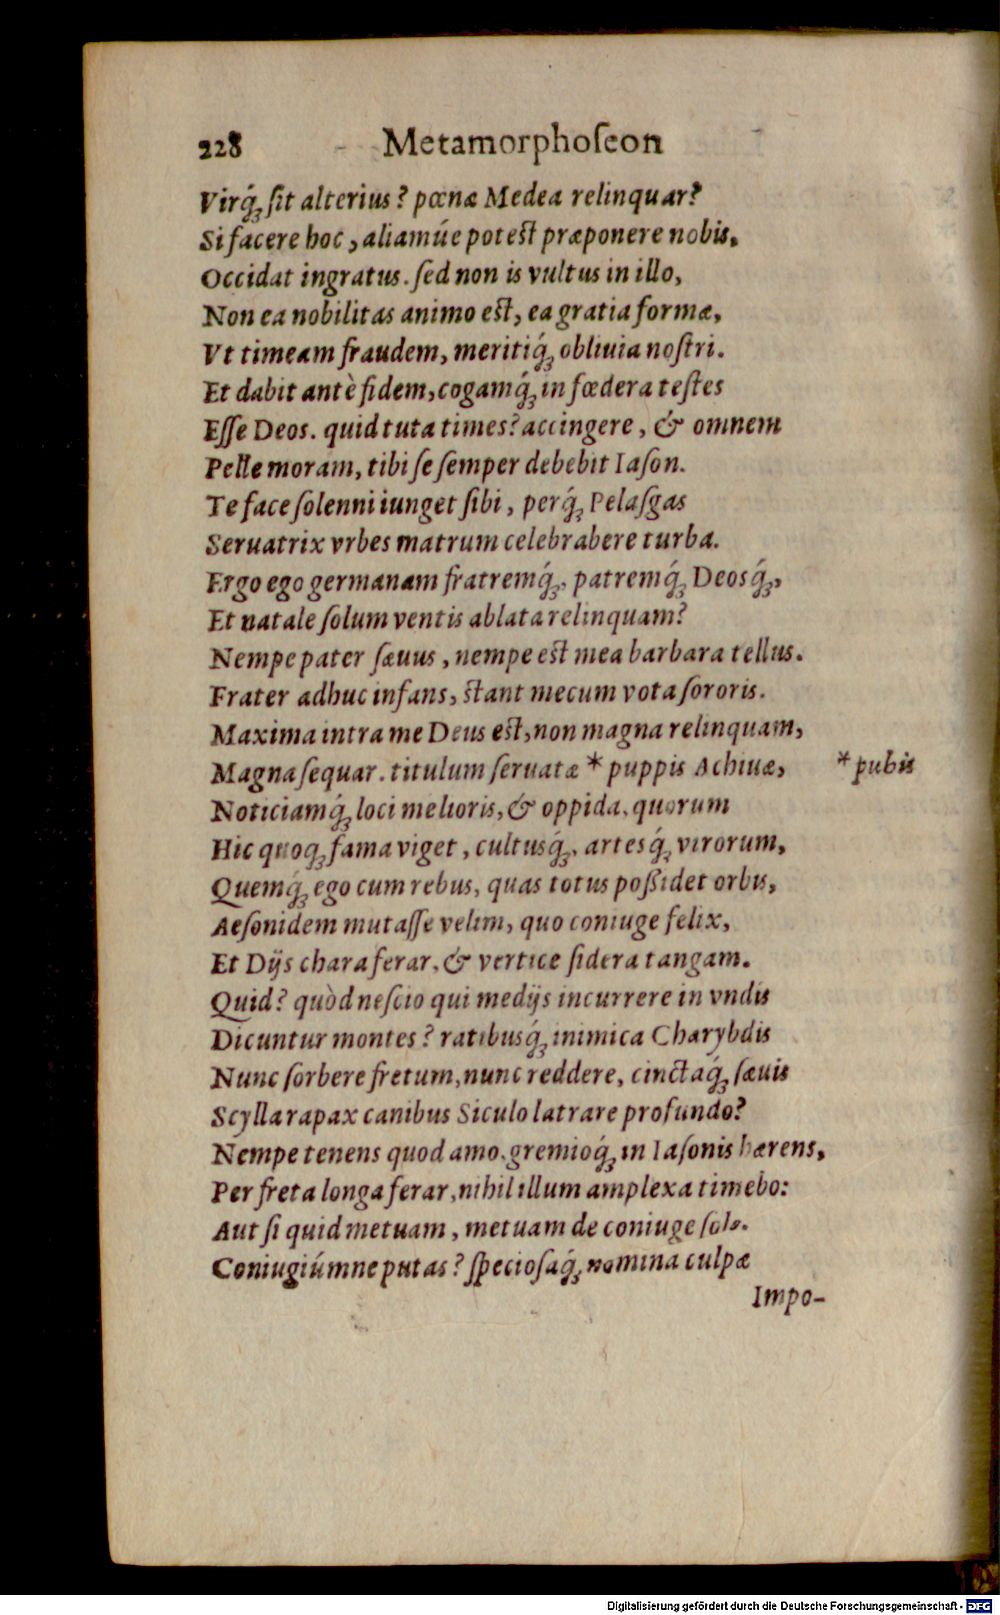 228 Metamorphoſeon
Virq́ꝫ ſit alterius? pœnæ Medea relinquar?
Si facere hoc, aliamúe poteſt præponere nobis,
Occidat ingratus. ſed non is vultus in illo,
Non ea nobilitas animo eſt, ea gratia formæ,
Vt timeam fraudem, meritiq́ꝫ obliuia noſtri.
Et dabit antè fidem, cogamq́ꝫ in fœdera teſtes
Eſſe Deos. quid tuta times? accingere, & omnem
Pelle moram, tibi ſe ſemper debebit Iaſon.
Te face ſolenni iunget ſibi, perq́ꝫ Pelaſgas
Seruatrix vrbes matrum celebrabere turba.
Ergo ego germanam fratremq́ꝫ, patremq́ꝫ Deosq́ꝫ,
Et natale ſolum ventis ablata relinquam?
Nempe pater ſæuus, nempe eſt mea barbara tellus.
Frater adhuc infans, ſtant mecum vota ſororis.
Maxima intra me Deus eſt, non magna relinquam,
Magna ſequar. titulum ſeruatæ * puppis Achiuæ, * pubis
Noticiamq́ꝫ loci melioris, & oppida, quorum
Hic quoqꝫ fama viget, cultusq́ꝫ, artesq́ꝫ virorum,
Quemq́ꝫ ego cum rebus, quas totus poßidet orbis,
Aeſonidem mutaſſe velim, quo coniuge felix,
Et Dijs chara ferar, & vertice ſidera tangam.
Quid? quòd neſcio qui medijs incurrere in vndis
Dicuntur montes? ratibusq́ꝫ inimica Charybdis
Nunc ſorbere fretum, nunc reddere, cinctaq́ꝫ ſæuis
Scylla rapax canibus Siculo latrare profundo?
Nempe tenens quod amo, gremioq́ꝫ in Iaſonis hærens,
Per freta longa ferar, nihil illum amplexa timebo:
Aut ſi quid metuam, metuam de coniuge ſolo.
Coniugiúmne putas? ſpecioſaq́ꝫ nomina culpæ
Impo-
Digitalisierung gefördert durch die Deutsche Forschungsgemeinschaft - DFG